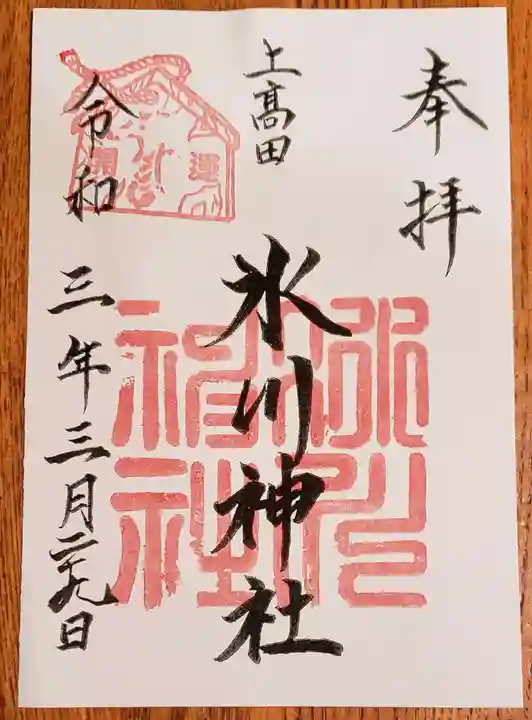 奉拝
上高田
氷川神社
令和三年三月二十九日
開運
氷川神社